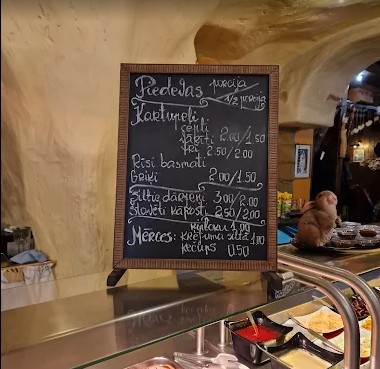 Piedevas porcija
1/2 porcija
Kartupeļi
cepti
vārīti 2.00/1.50
frī 2.50/2.00
Rīsi basmati
Griķi 2.00/1.50
Siltie dārzeņi 3.00/2.00
Štovēti kāposti 2.50/2.00
ķiploku 1.00
Mērces: krējuma siltā 1.00
kečups 0.50